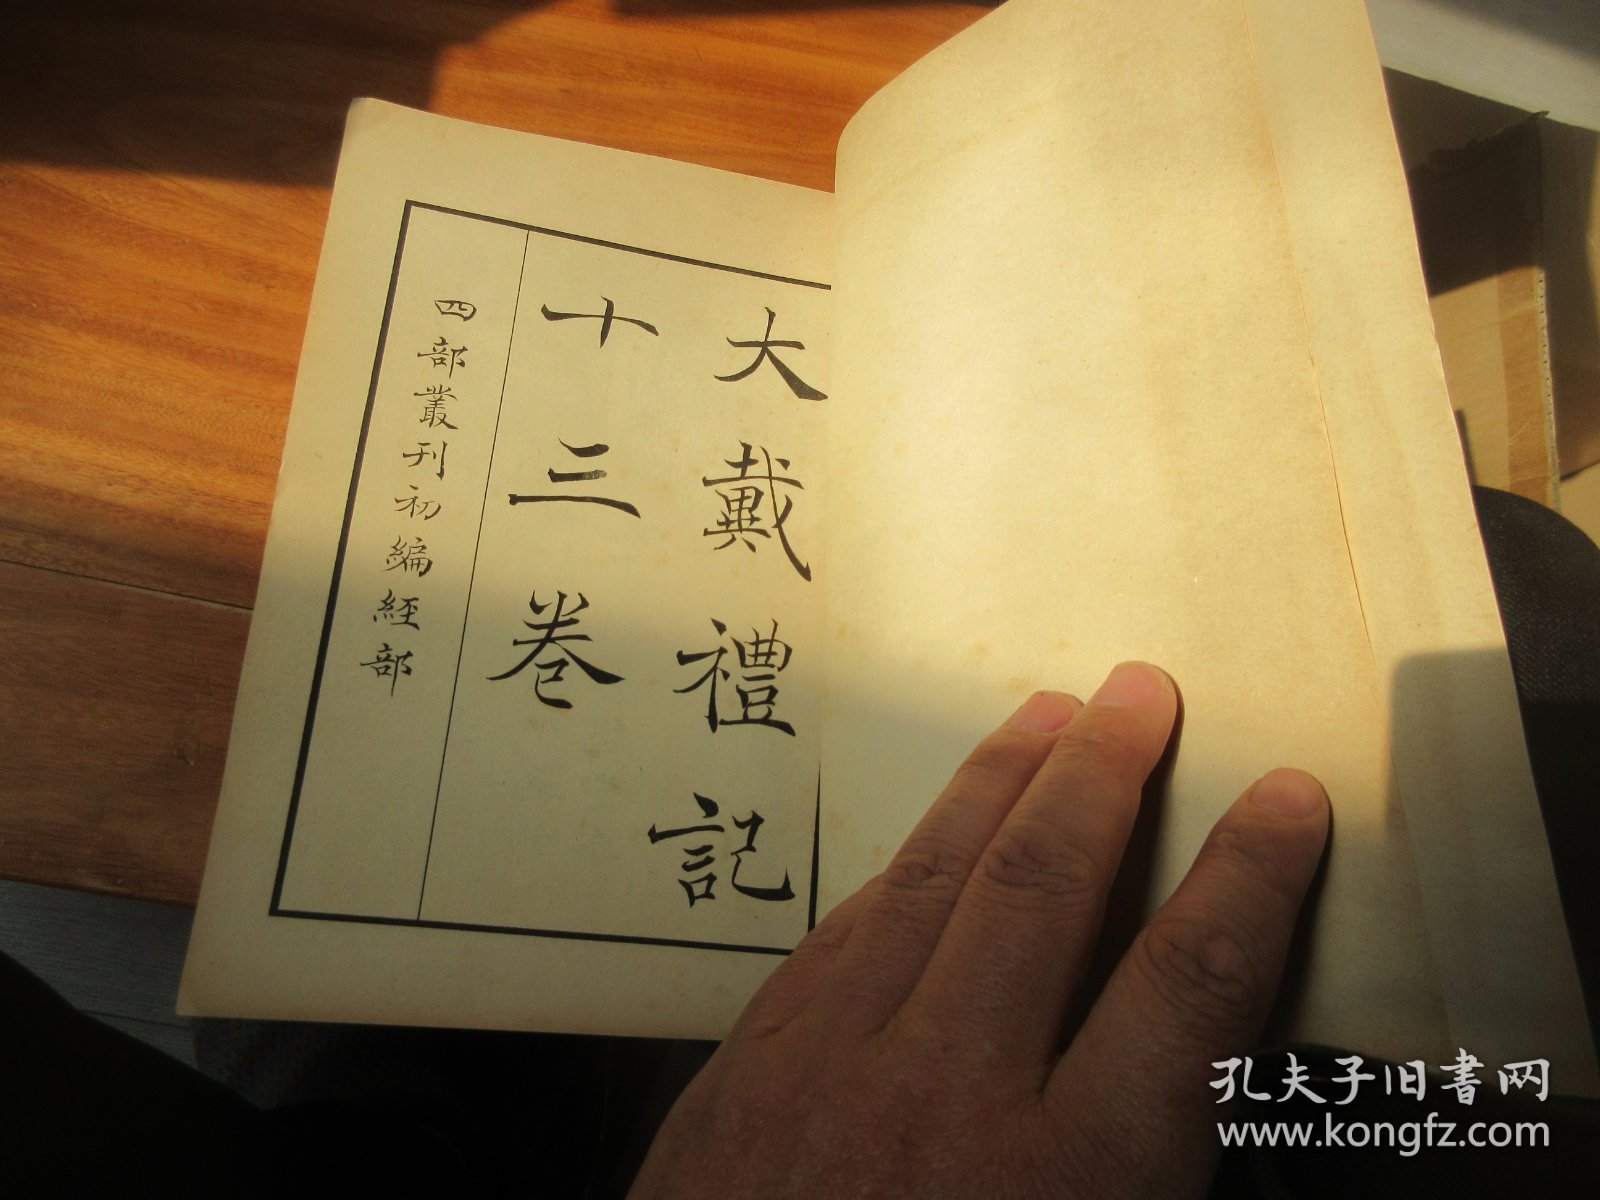 大戴禮記
十三卷
四部叢刊初編經部
孔夫子旧书网
www.kongfz.com